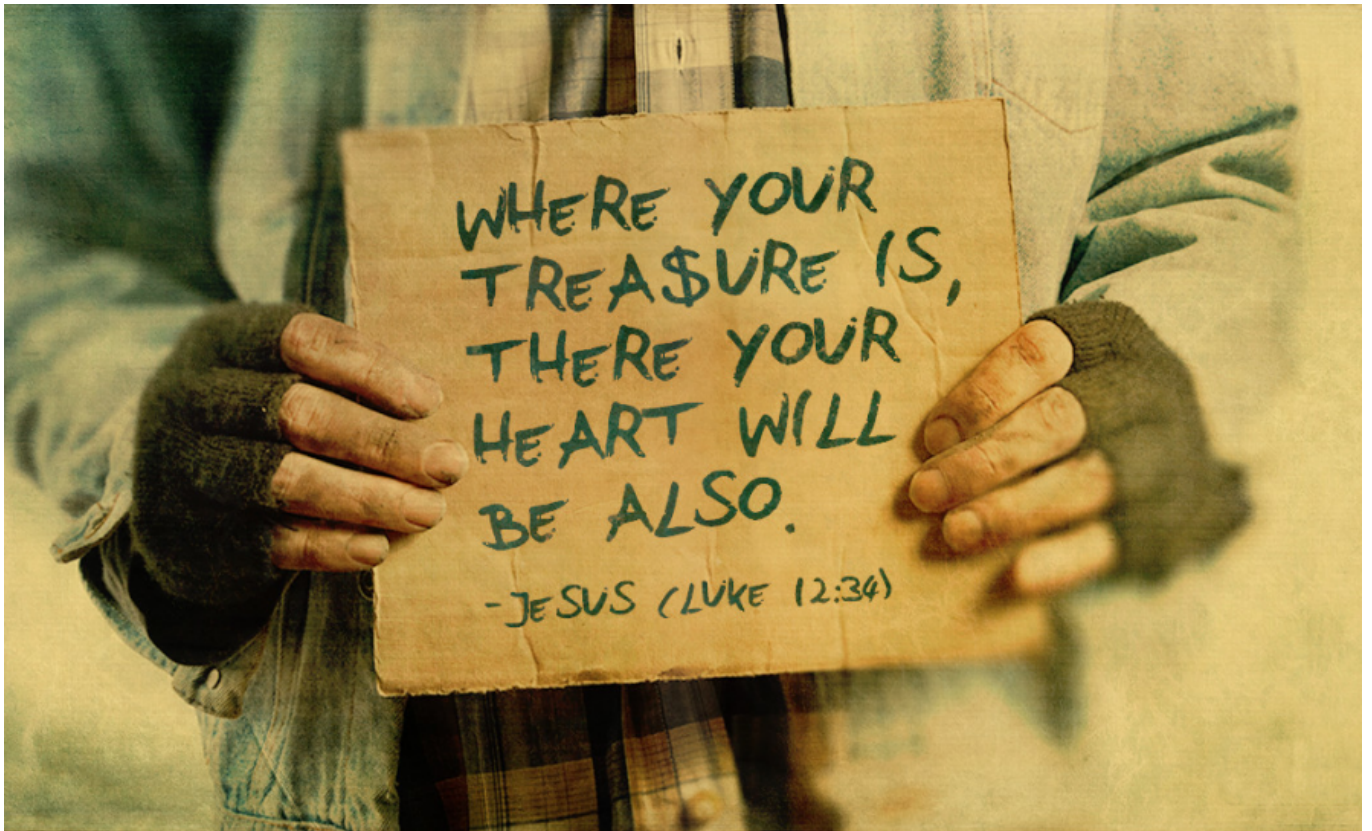 WHeRe YOUR
TReA$URe IS,
THeRe YOUR
HeART WILL
Be ALSO.
-JeSUS (LUKe 12:34)